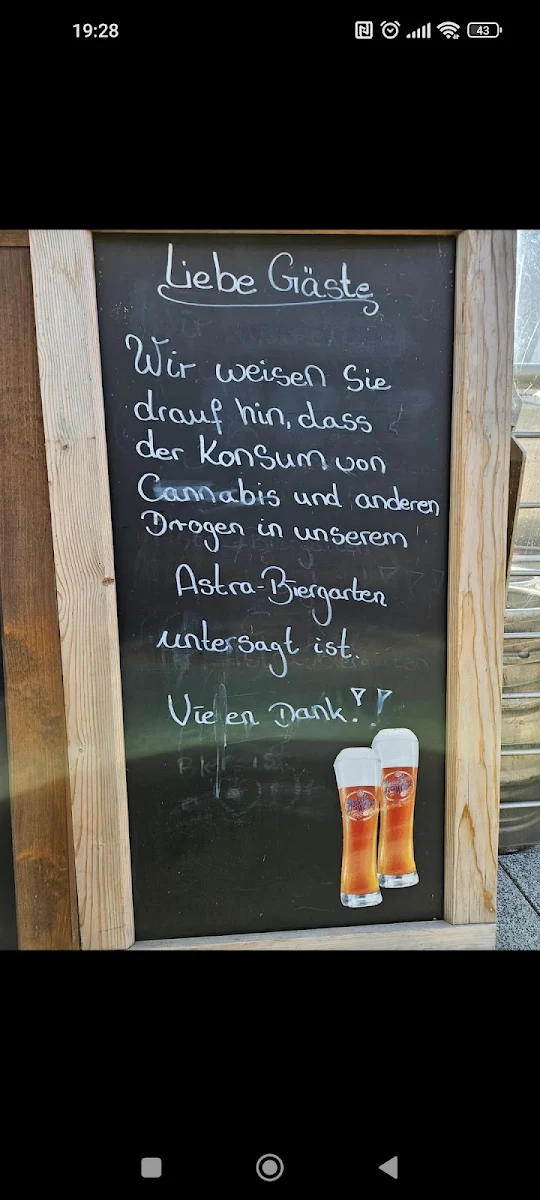 19:28
43
Liebe Gäste
Wir weisen Sie
drauf hin, dass
der Konsum von
Cannabis und anderen
Drogen in unserem
Astra-Biergarten
untersagt ist.
Vielen Dank!!